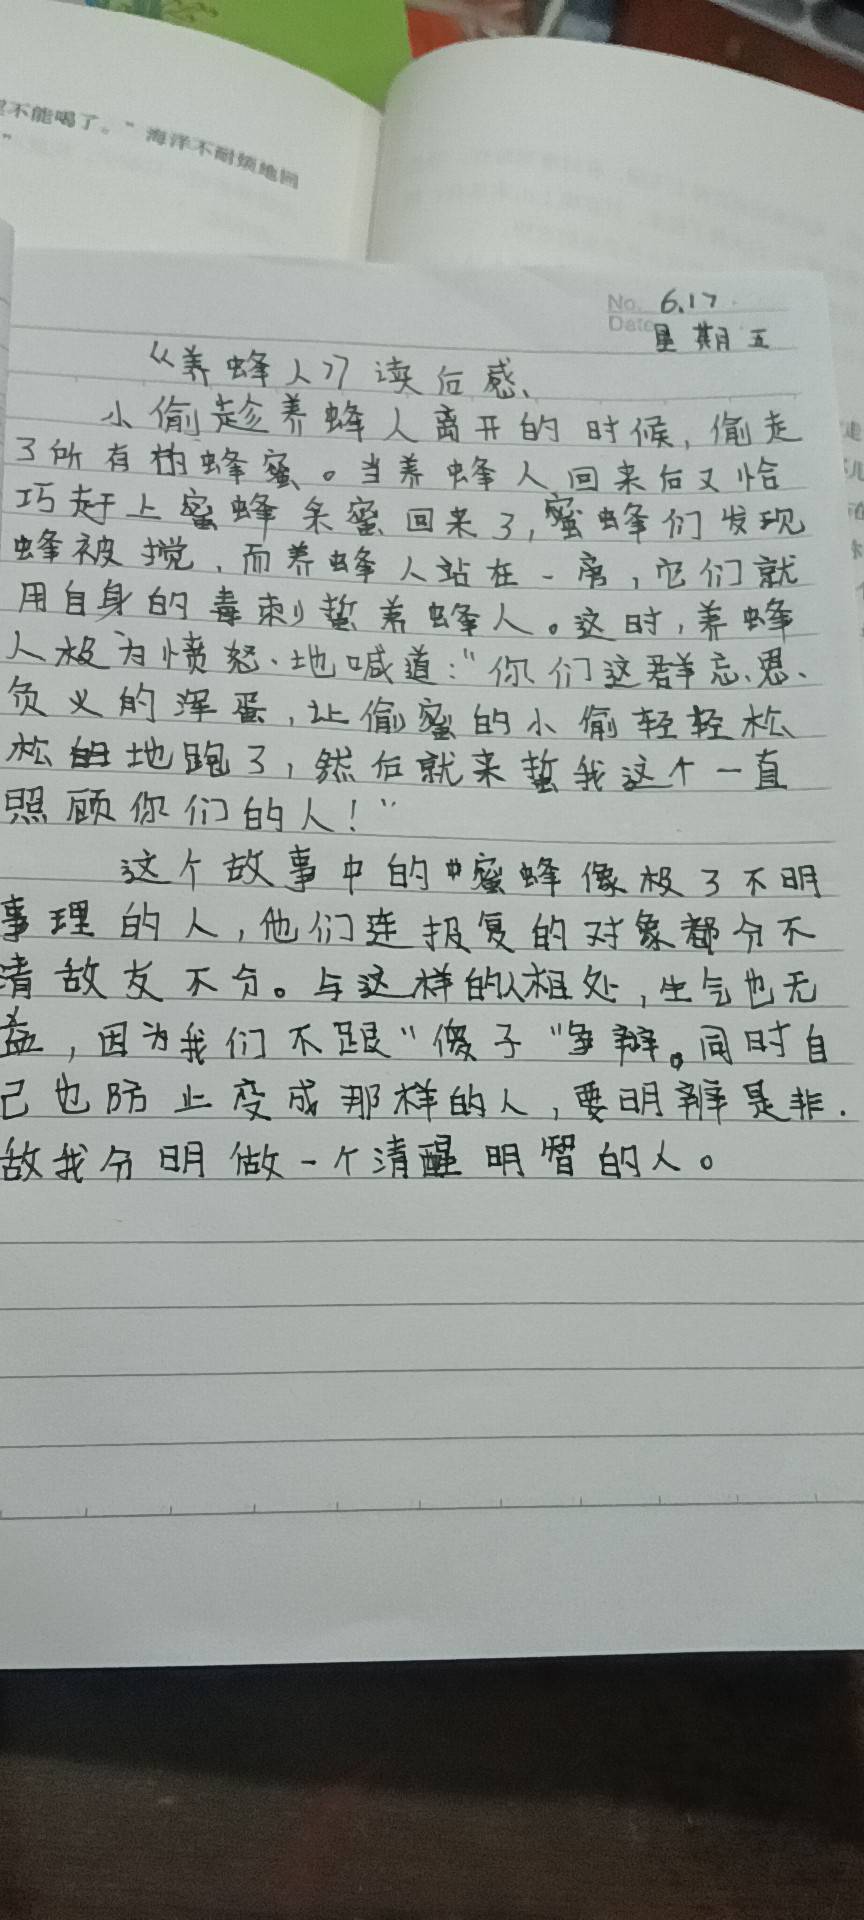 不能喝了。”海洋不耐烦地回
”
No. 6.17
Date 星期五
《养蜂人》读后感
小偷趁养蜂人离开的时候,偷走
了所有的蜂蜜。当养蜂人回来后又恰
巧赶上蜜蜂采蜜回来了,蜜蜂们发现
蜂被搅,而养蜂人站在一旁,它们就
用自身的毒刺蜇养蜂人。这时,养蜂
人极为愤怒地喊道:“你们这群忘恩
负义的浑蛋,让偷蜜的小偷轻轻松
松地跑了,然后就来蜇我这个一直
照顾你们的人!”
这个故事中的蜜蜂像极了不明
事理的人,他们连报复的对象都分不
清敌友不分。与这样的人相处,生气也无
益,因为我们不跟“傻子“争辩。同时自
己也防止变成那样的人,要明辨是非.
敌我分明做一个清醒明智的人。